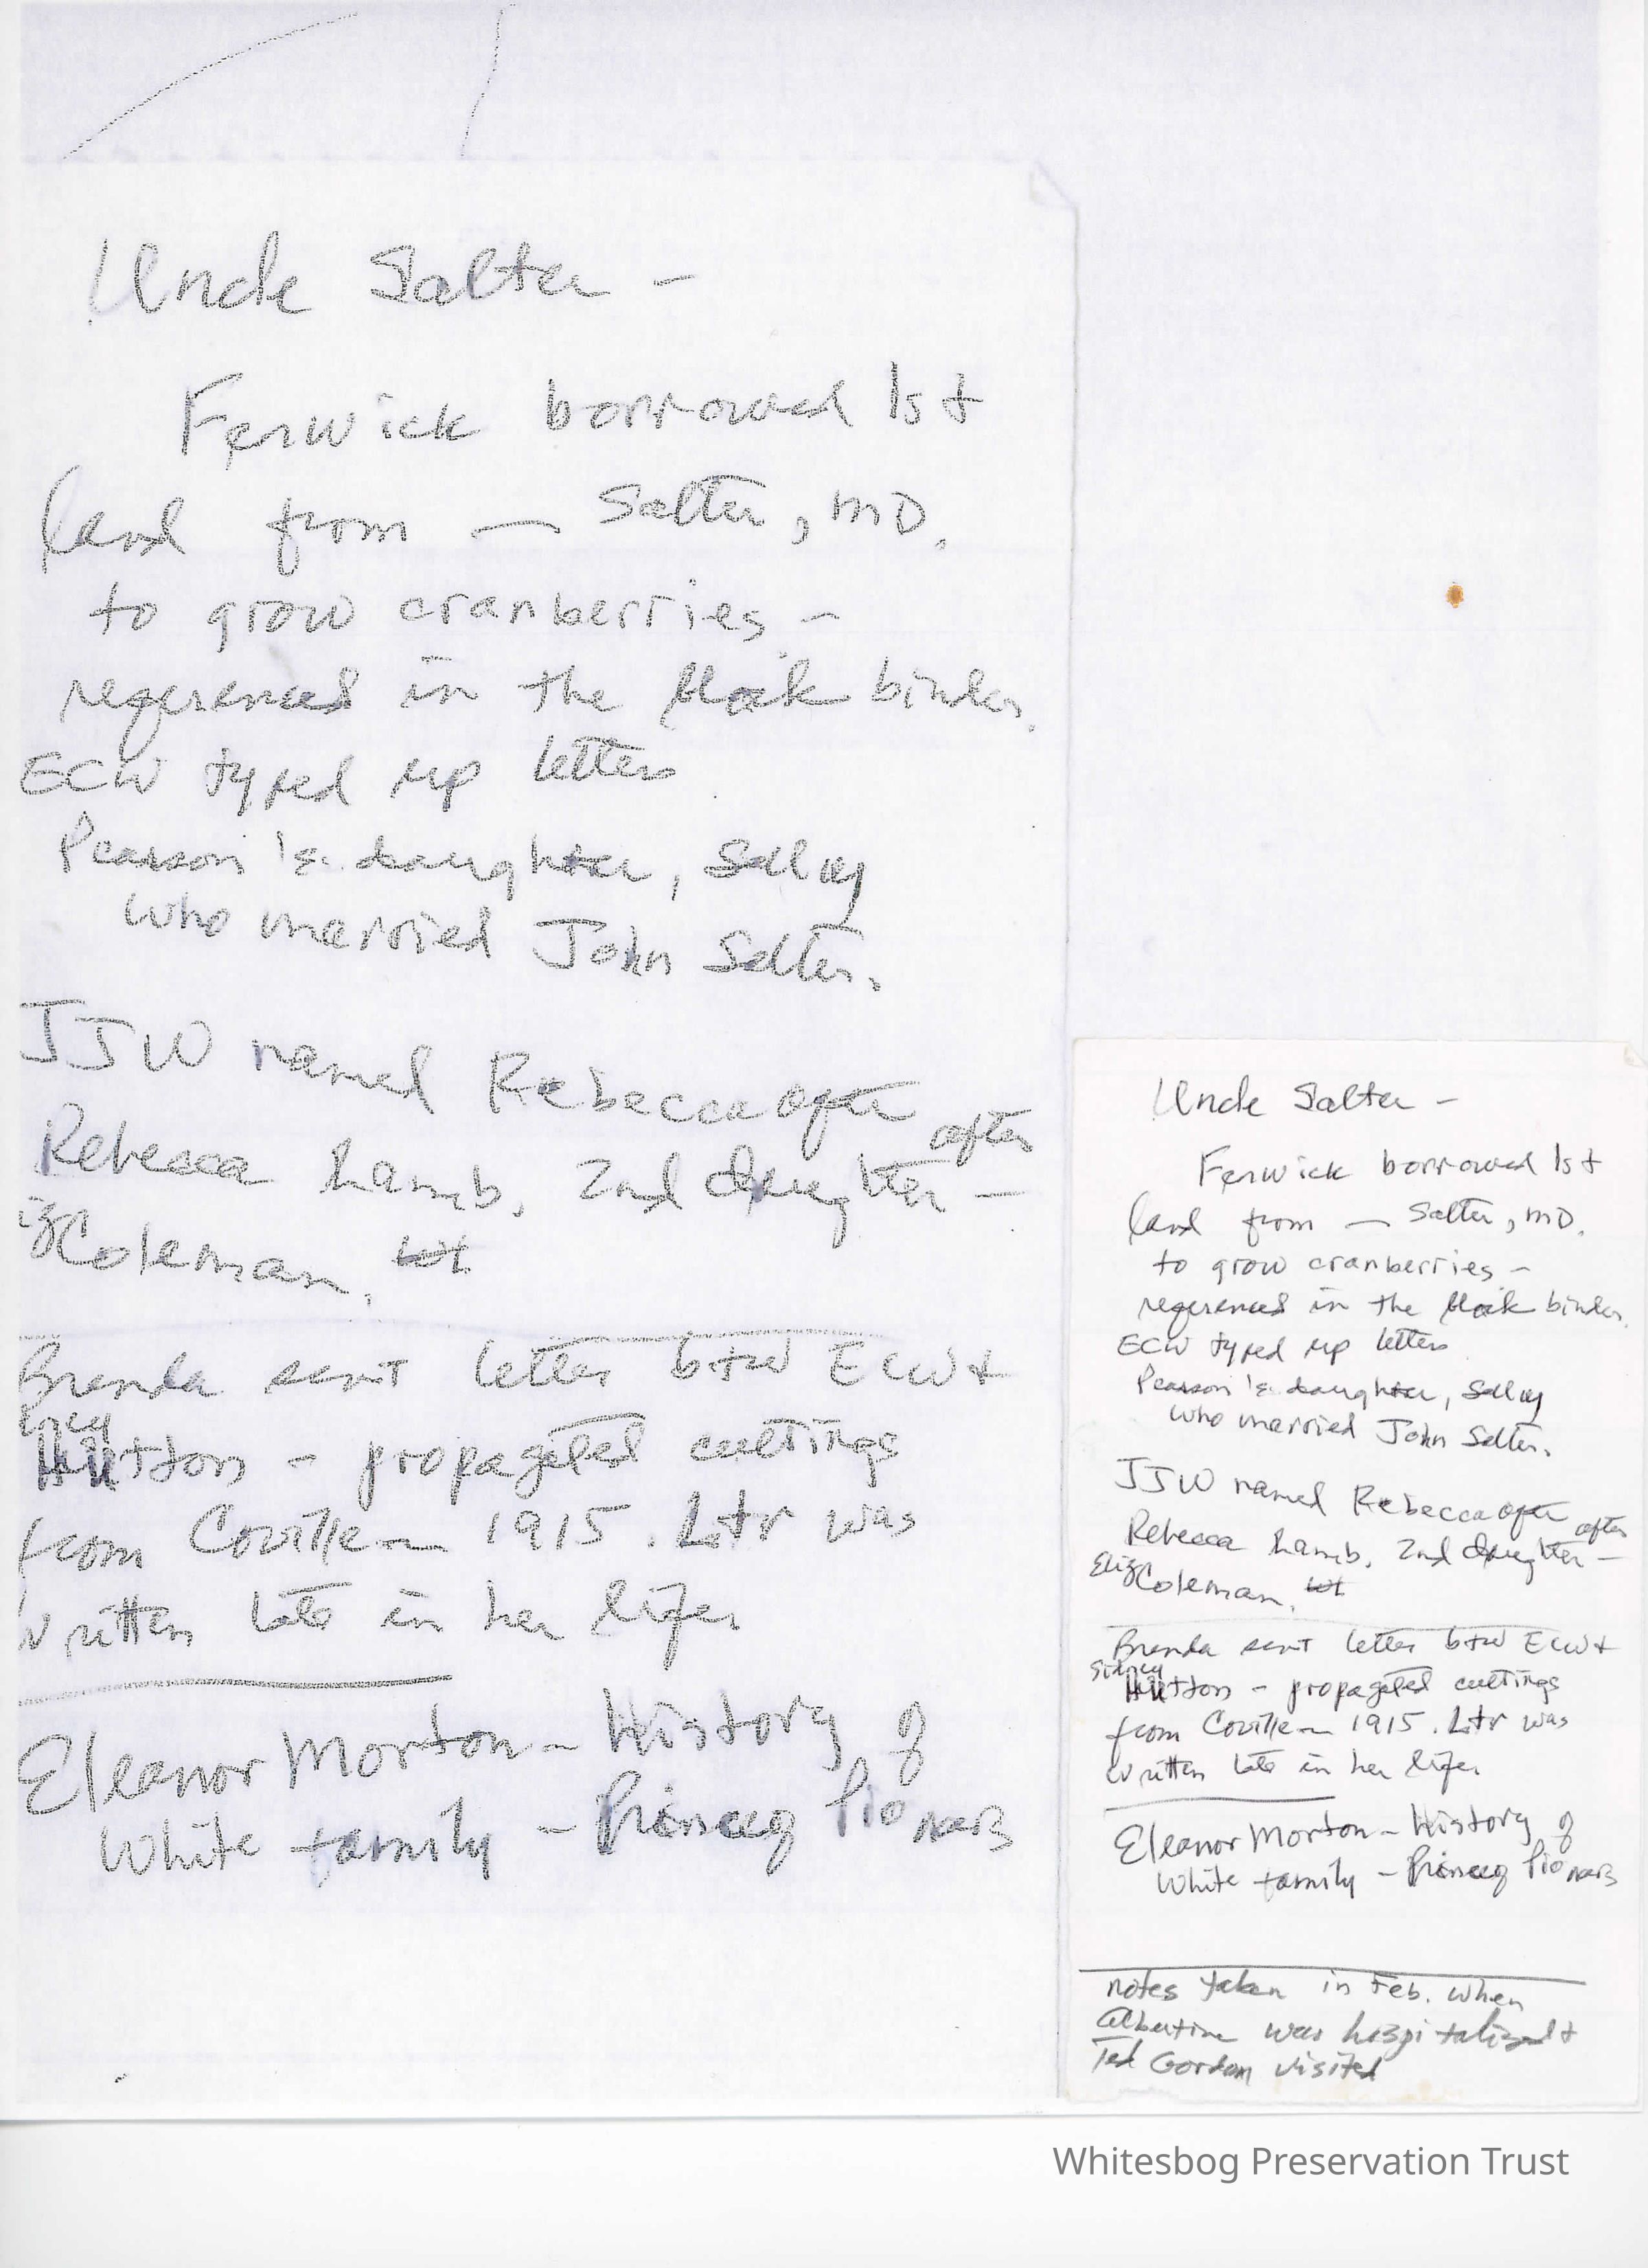 Uncle Salter -
Fenwick borrowed 1st
land from — Salter, MD.
to grow cranberries -
referenced in the black binder.
ECW typed up letters
Pearson's daughter, Sally
who married John Salter.
JJW named Rebecca after
Rebecca Lamb. 2nd daughter - after
iz Coleman.
Brenda sent letter btw ECW +
Hutton - propagated cuttings
from Coville in 1915. Lttr was
written late in her life.
Eleanor Morton - History of
White family - Pioneer
Uncle Salter -
Fenwick borrowed 1st
land from — Salter, MD.
to grow cranberries -
referenced in the black binder.
ECW typed up letters
Pearson's daughter, Sally
who married John Salter.
JJW named Rebecca after
Rebecca Lamb. 2nd daughter - after
Eliz Coleman.
Brenda sent letter btw ECW +
Sidney
Hutton - propagated cuttings
from Coville in 1915. Lttr was
written late in her life.
Eleanor Morton - History of
White family - Pioneer
notes taken in Feb. when
Albertine was hospitalized +
Ted Gordon visited
Whitesbog Preservation Trust